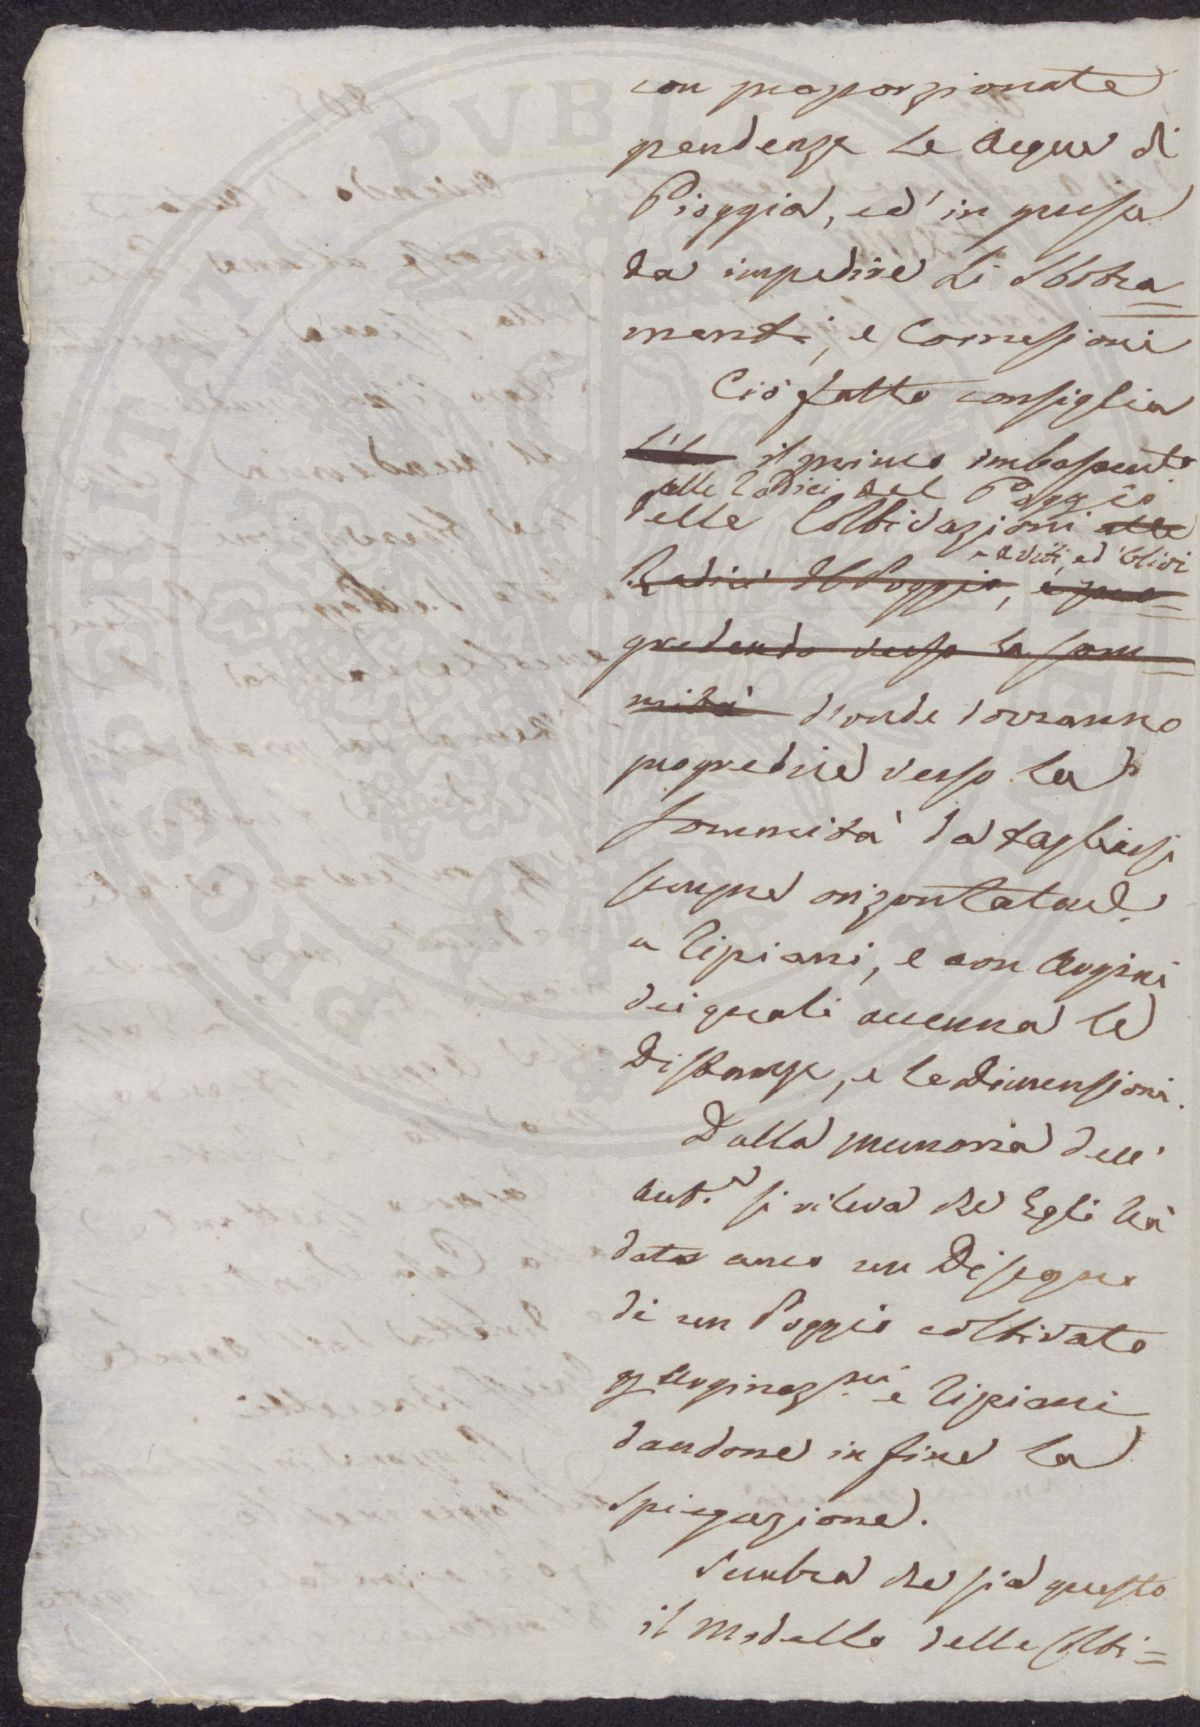 con proporzionate
pendenze le Acque di
Pioggia, ed' in guisa
da impedire li Sbotra=
menti, e Corrosioni
Ciò fatto consiglia
il primo imbasamento
alle Radici del Poggio
delle Coltivazioni alle
a Viti, ed Olivi
Radici del Poggio, e pro=
gredendo verso la som=
mità d'onde dovranno
progredire verso la
Sommità da tagliarsi
sempre orizontalmte
a Ripiani, e con Argini
dei quali accenna le
Distanze, e le Dimensioni.
Dalla memoria dell'
Aut.e si rileva che Egli hà
dato anco un Disegno
di un Poggio coltivato
p Arginaz.ni e Ripiani
dandone in fine la
Spiegazione.
Sembra che sia questo
il Modello delle Colti=